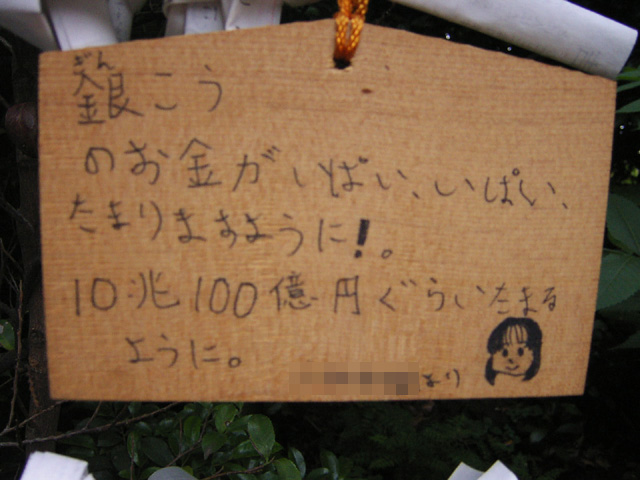 ぎん
銀こう
のお金がいぱい、いぱい、
たまりますように!。
10兆100億円ぐらいたまる
ように。
より